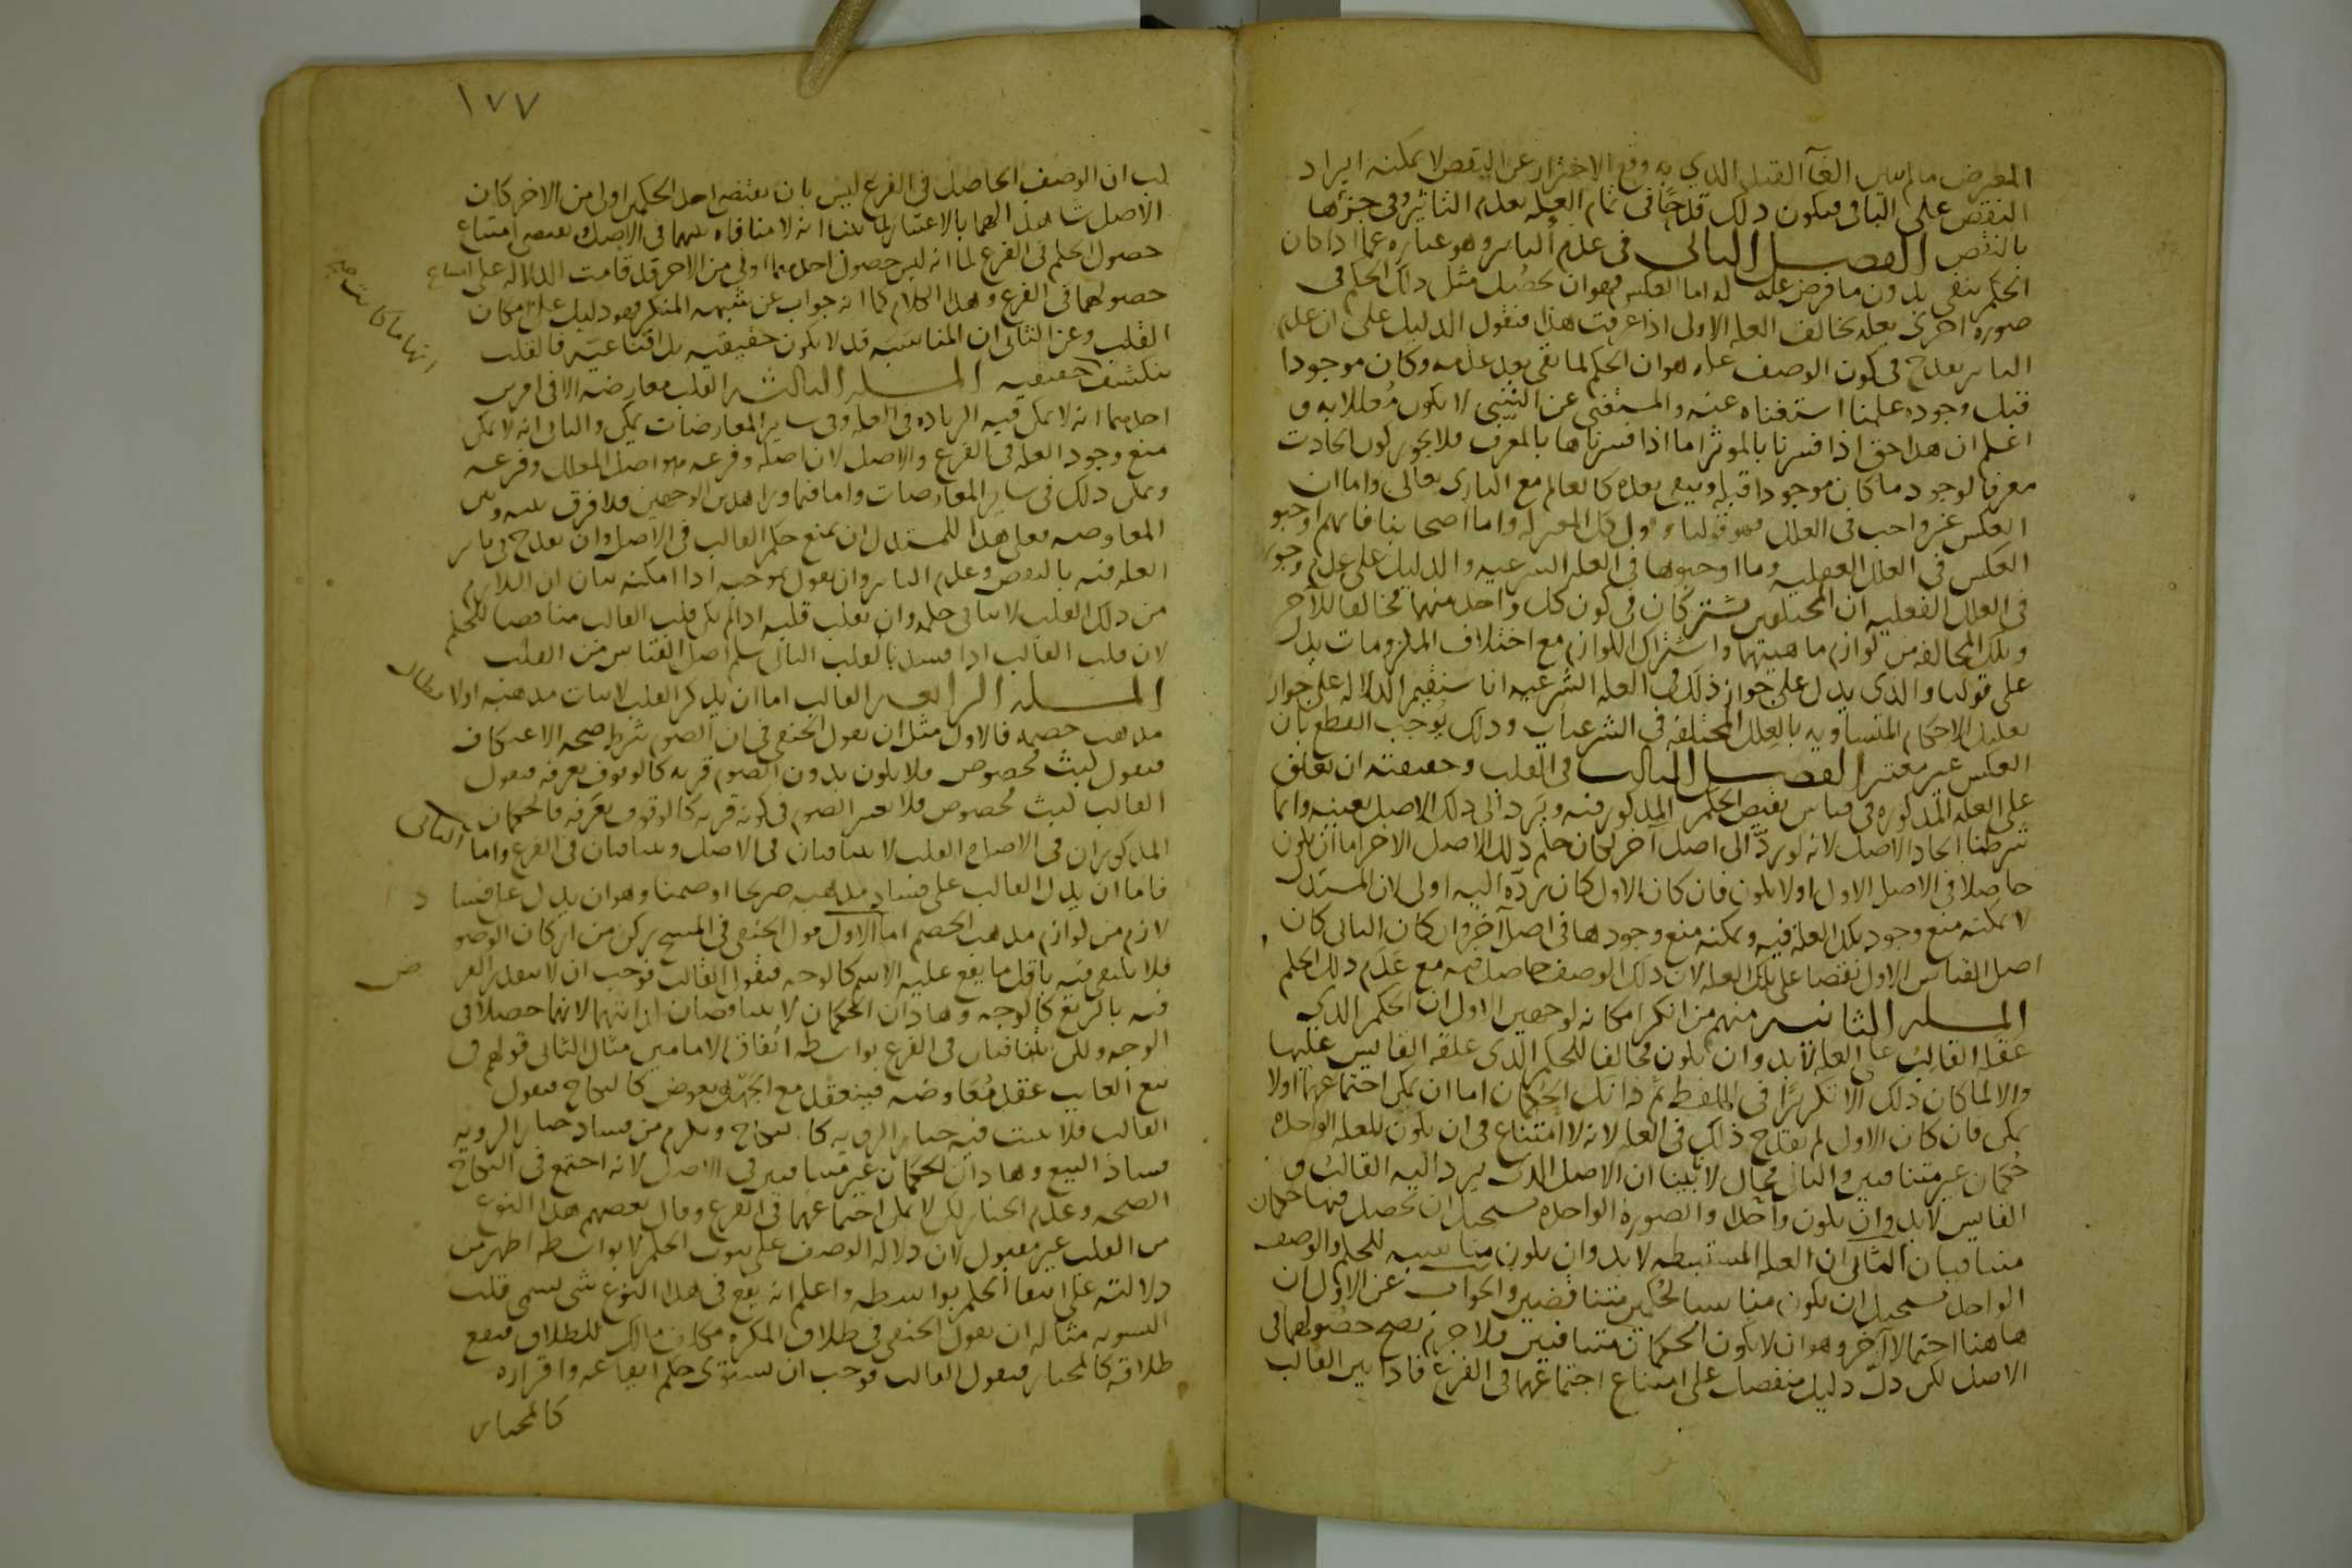 المعترض ما لم يبين الغآ القيد الذي به وقع الاحتراز عن النقض لا يمكنه ايراد
النقض على الباقي فيكون ذلك قدحًا في تمام العلة بعدم التاثير وفي جزئها
بالنقض الفصل الثاني في عدم التاثير وهو عبارة عما اذا كان
الحكم يبقى بدون ما فرض علة له اما العكس فهو ان يحصل مثل ذلك الحكم في
صورة اخرى بعلة تخالف العلة الاولى اذا عرفت هذا فنقول الدليل على ان عدم
التاثير يقدح في كون الوصف علة هو ان الحكم لما بقي بعد عدمه وكان موجودا
قبل وجوده علمنا استغناه عنه والمستغنى عن الشي لا يكون مُعللا به و
اعلم ان هذا حق اذا فسرنا بالموثر اما اذا فسرناها بالمعرف فلا يجوز كون الحادث
معرفا لوجود ما كان موجودا قبله ويبقى بعده كالعالم مع الباري تعالى واما ان
العكس غير واجب في العلل فهو قولنا وقول المعتزلة واما اصحابنا فانهم اوجبو
العكس في العلل العقلية وما اوجبوها في العلة الشرعية والدليل على عدم وجوبه
في العلل العقلية ان المختلفين يشتركان في كون كل واحد منهما مخالفا للآخر
وتلك المخالفة من لوازم ماهيتهما واشتراك اللوازم مع اختلاف الملزومات يدل
على قولنا والذي يدل على جواز ذلك في العلة الشرعية انا سنقيم الدلالة على جواز
تعليل الاحكام المتساوية بالعلل المختلفة في الشرعيات وذلك يُوجب القطع بان
العكس غير معتبر الفصل الثالث في القلب وحقيقته ان يعلق
على العلة المذكورة في قياس نقيض الحكم المذكور فيه ويُرد الى ذلك الاصل بعينه وانما
شرطنا اتحاد الاصل لانه لو ردّ الى اصل آخر لكان حكم ذلك الاصل الآخر اما ان يكون
حاصلا في الاصل الاول او لا يكون فان كان الاول كان ردّه اليه اولى لان المستدل
لا يمكنه منع وجود تلك العلة فيه ويمكنه منع وجودها في اصل آخر وان كان الثاني كان
اصل القياس الاول نقضا على تلك العلة لان ذلك الوصف حاصل فيه مع عَدَم ذلك الحكم
المسلة الثانية منهم من انكر امكانه لوجهين الاول ان الحكم الذي
علقه القالبُ على العلة لا بد وان يكون مخالفا للحكم الذي علقه القايس عليها
والا لما كان ذلك الا تكريرًا في اللفظ ثم ذانك الحُكمان اما ان يمكن اجتماعهما اولا
يمكن فان كان الاول لم يقدح ذلك في العلة لانه لا امتناع في ان يكون للعلة الواحدة
حُكمان غير متنافيين والثاني مُحال لانا بَيّنا ان الاصل الذي يرد اليه القالبُ و
القايس لا بد وان يكون واحدًا والصورة الواحدة يستحيل ان تحصل فيها حكمان
متنافيان الثاني ان العلة المستنبطة لا بد وان يكون مناسبة للحكم والوصف
الواحد يستحيل ان يكون مناسبا لحُكمين متناقضين والجواب عن الاول ان
هاهنا احتمالا آخر وهو ان لا يكون الحكمان متنافيين فلا جرم يصح حصُولهما في
الاصل لكن دلّ دليل منفصل على امتناع اجتماعهما في الفرع فاذا بين القالب
١٧٧
ان الوصف الحاصل في الفرع ليس بان يقتضي احد الحكمين اولى من الاخر كان
الاصل شاهدا لهما بالاعتبار لما بينا انه لا منافاة بينهما في الاصل ويقتضي امتناع
حصول الحكم في الفرع لما انه ليس حصول احدهما اولى من الاخر وقد قامت الدلالة على امتناع
حصولهما في الفرع وهذا الكلام كما انه جواب عن شبهه المنكر فهو دليل على امكان
القلب وعن الثاني ان المناسَبَه قد لا يكون حقيقيه بل اقناعيّة فالقلب
ينكشف حقيقية المسلة الثالثة القلب معارضة الا في امرين
احدهما انه لا يمكن فيه الزيادة في العلة وفي ساير المعارضات يمكن والثاني انه لا يمكن
منع وجود العلة في الفرع والاصل لان اصله وفرعه هو اصل المعلل وفرعه
ويمكن ذلك في ساير المعارضات واما فيما ورا هذين الوجهين فلا فرق بينه وبين
المعارضة فعلى هذا للمستدل ان يمنع حكم القالب في الاصل وان يقدح في تاثير
العلة فيه بالنقض وعدم التاثير وان يقول بموجبه اذا امكنه بيان ان اللازم
من ذلك القلب لا ينافي حكمه وان يقلب قلبه اذا لم يكن قلب القالب مناقضا للحكم
لان قلب القالب اذا فسد بالقلب الثاني سلم اصل القياس من القلب
المسلة الرابعة القالب اما ان يذكر القلب لاثبات مذهبه اولا بطال
مذهب خصمه فالاول مثل ان يقول الحنفي في ان الصوم شرط صحة الاعتكاف
فيقول لبث مُخصوص فلا يكون بدون الصوم قربة كالوقوف بعرفة فيقول
القالب لبث مُخصوص فلا يعتبر الصوم في كونه قربة كالوقوف بعَرَفة فالحكمان
المذكوران في الاصل والقلب لا يتنافيان في الاصل ويتنافيان في الفرع واما الثاني
فاما ان يدل القالب على فساد مذهبه صريحا او ضمنا وهو ان يدل على فساد
لازم من لوازم مذهب الخصم اما الاول قول الحنفي في المسح ركن من اركان الوضو
فلا يكتفى فيه باقل ما يقع عليه الاسم كالوجه فيقول القالب فوجب ان لا يتقدر الفرض
فيه بالربع كالوجه وهاذان الحكمان لا يتناقضان لذاتهما لانهما حصلا في
الوجه ولكن يتنافيان في الفرع بواسطة اتفاق الامامين مثال الثاني قولهم في
بيع الغايب عقد مُعاوضة فينعقد مع الجَهل بعوض كالنكاح فيقول
القالب فلا يثبت فيه خيار الروية كالنكاح ويلزم من فساد خيار الروية
فساد البيع وهاذان الحكمان غير متنافيين في الاصل لانه اجتمع في النكاح
الصحة وعدم الخيار لكن لا يمكن اجتماعهما في الفرع وقال بعضهم هذا النوع
من القلب غير مقبول لان دلالة الوصف على ثبوت الحكم لا بواسطة اظهر من
دلالته على انتفا الحكم بواسطة واعلم انه يقع في هذا النوع شي يسمى قلب
التسوية مثاله ان يقول الحنفي في طلاق المكره مكلف مالك للطلاق فيقع
طلاقه كالمختار فيقول القالب فوجب ان يستوى حكم ايقاعه واقراره
كالمختار